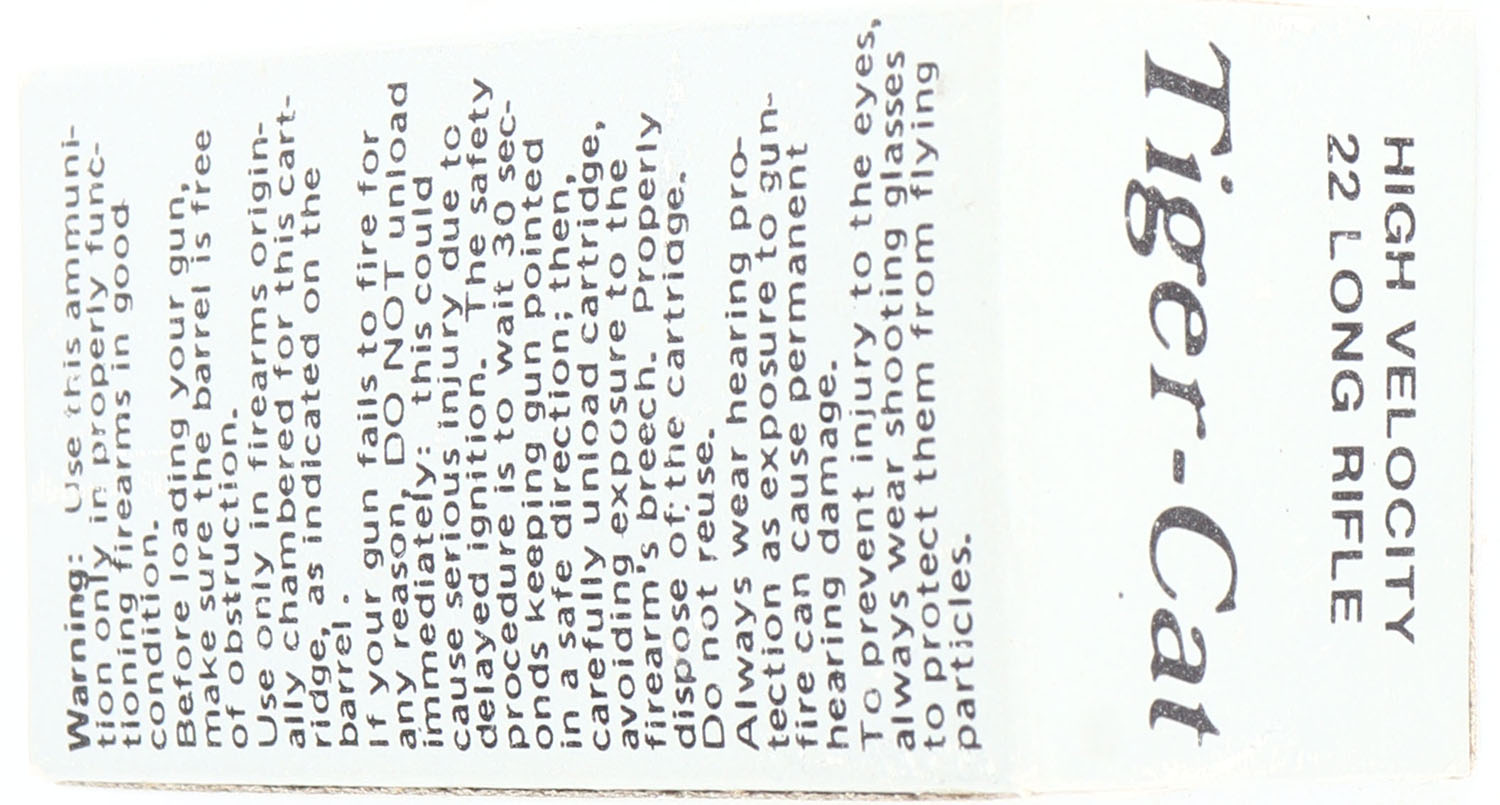 Warning: Use this ammuni-
tion only in properly func-
tioning firearms in good
condition.
Before loading your gun,
make sure the barrel is free
of obstruction.
Use only in firearms origin-
ally chambered for this cart-
ridge, as indicated on the
barrel.
If your gun fails to fire for
any reason, DO NOT unload
immediately: this could
cause serious injury due to
delayed ignition. The safety
procedure is to wait 30 sec-
onds keeping gun pointed
in a safe direction; then,
carefully unload cartridge,
avoiding exposure to the
firearm's breech. Properly
dispose of the cartridge.
Do not reuse.
Always wear hearing pro-
tection as exposure to gun-
fire can cause permanent
hearing damage.
To prevent injury to the eyes,
always wear shooting glasses
to protect them from flying
particles.
Tiger-Cat
HIGH VELOCITY
22 LONG RIFLE